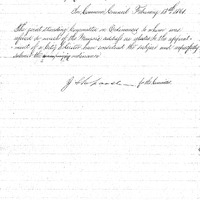 In Common Council February 15th 18
The joint standing Committee on Ordinances to whom was
referred so much of the Mayor's address as relates to the appoint-
ment of a City Solicitor have considered the subject and respectfully
submit the accompanying ordinance
for the Committee